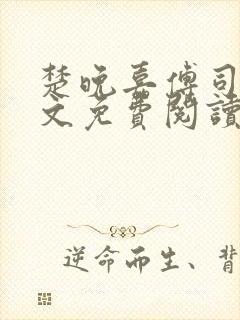 楚晚喜傅司
文免費閱讀
逆命而生、背